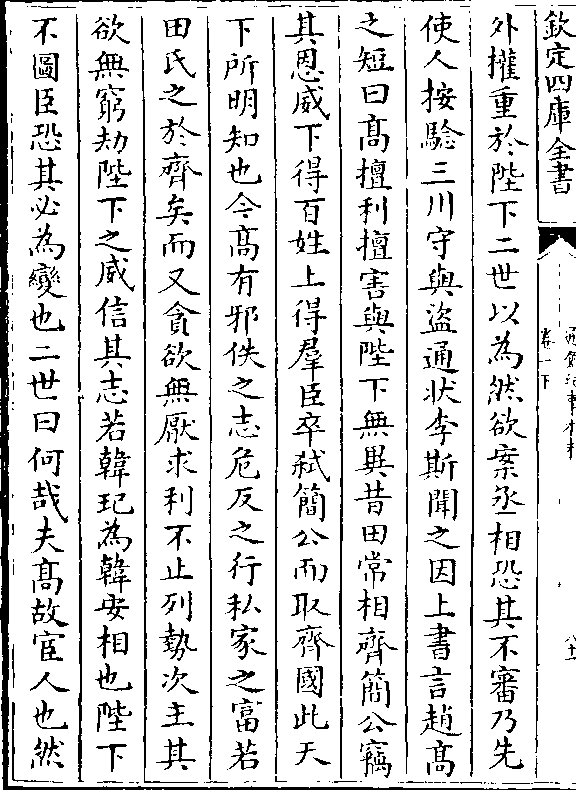 欽定四庫全書
卷一下
外權重於陛下二世以為然欲案丞相恐其不審乃先
使人按驗三川守與盜通狀李斯聞之因上書言趙髙
之短曰髙擅利擅害與陛下無異昔田常相齊簡公竊
其恩威下得百姓上得羣臣卒弑簡公而取齊國此天
下所明知也今髙有邪佚之志危反之行私家之富若
田氏之於齊矣而又貪欲無厭求利不止列勢次主其
欲無窮劫陛下之威信其志若韓玘為韓安相也陛下
不圖臣恐其必為變也二世曰何哉夫髙故宦人也然